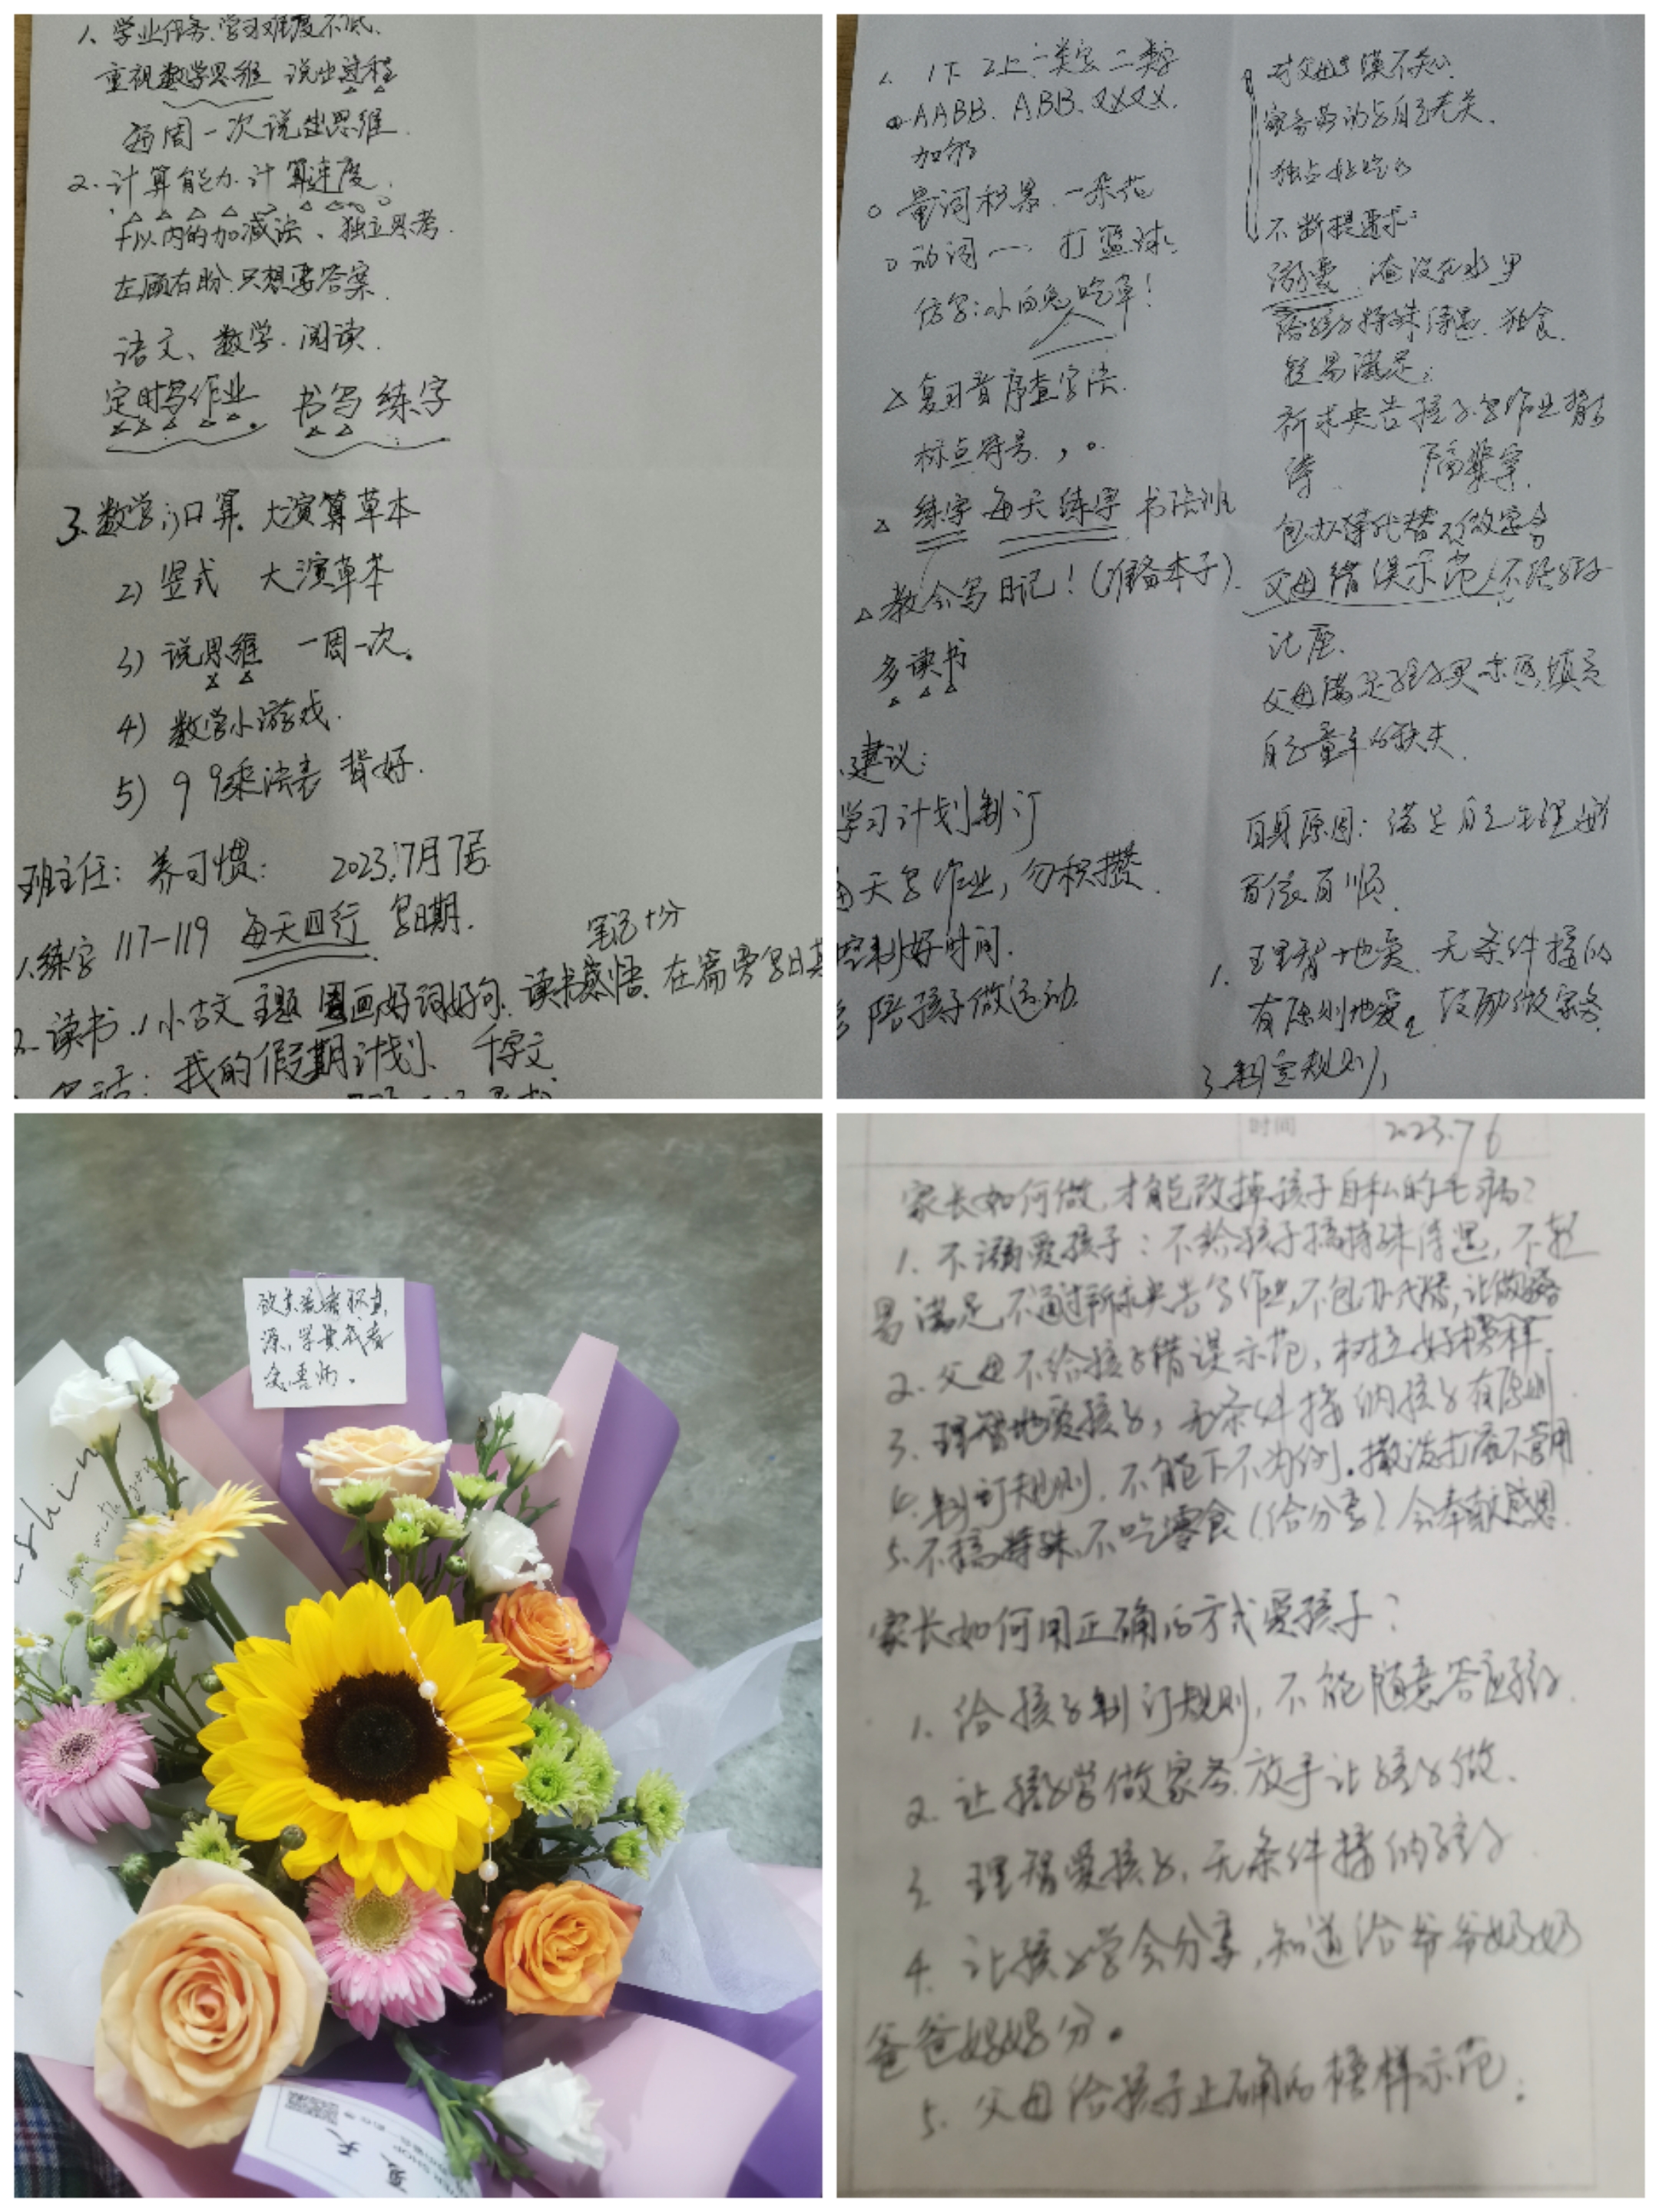 1、学业任务、学习难度不低、
重视数学思维 说出过程
每周一次说出思维.
2.计算能力.计算速度.
十以内的加减法、独立思考.
左顾右盼.只想要答案.
语文、数学.阅读.
定时写作业 书写 练字
3.数学:1)口算. 大演算草本
2)竖式 大演草本
3)说思维 一周一次。
4)数学小游戏.
5)99乘法表 背好.
班主任:养习惯: 2023.7月7居
1.练字 117-119 每天四行 写日期.
笔记+分
2.读书.1小古文 主题 圈画好词好句.读书感悟.在篇旁写日其
我的假期计划、千字文.
1下 2上 一类字 二类字
AABB. ABB. 又X又X.
量词积累.一朵花
动词一.打篮球.
仿写:小白兔吃草!
△复习音序查字法.
标点符号.,。
△练字 每天练字 书法班
△教会写日记!(准备本子).
多读书
建议:
学习计划制订
每天写作业,勿积攒.
控制好时间.
多陪孩子做运动.
对父母 漠不关心.
家务劳动与自己无关.
独占好吃的
不断提要求
溺爱.淹没在水里
给孩子特殊待遇.独食.
轻易满足;
祈求央告孩子写作业 背古
诗.
包办代替不做家务
父母错误示范
父母满足孩子
自己童年的缺失.
自身原因:满足自己生理
百依百顺.
1.理智地爱.无条件接纳
有原则地爱。鼓励做家务.
3.制定规则,
欲求
源,学贵
良师。
夏天
时间 2023.7 6
家长如何做,才能改掉孩子自私的毛病?
1.不溺爱孩子:不给孩子搞特殊待遇,不轻
易满足,不通过祈求央告写作业,不包办代替,让做家务
2.父母不给孩子错误示范,树立好榜样.
3.理智地爱孩子,无条件接纳孩子有原则.
4.制订规则.不能下不为例.撒泼打滚不管用
5.不搞特殊.不吃零食(给分享).会奉献感恩.
家长如何用正确的方式爱孩子?
1.给孩子制订规则,不能随意答应孩子.
2.让孩子学做家务.放手让孩子做.
3.理智爱孩子,无条件接纳孩子
4.让孩子学会分享,知道给爷爷奶奶
爸爸妈妈分。
5.父母给孩子正确的榜样示范.